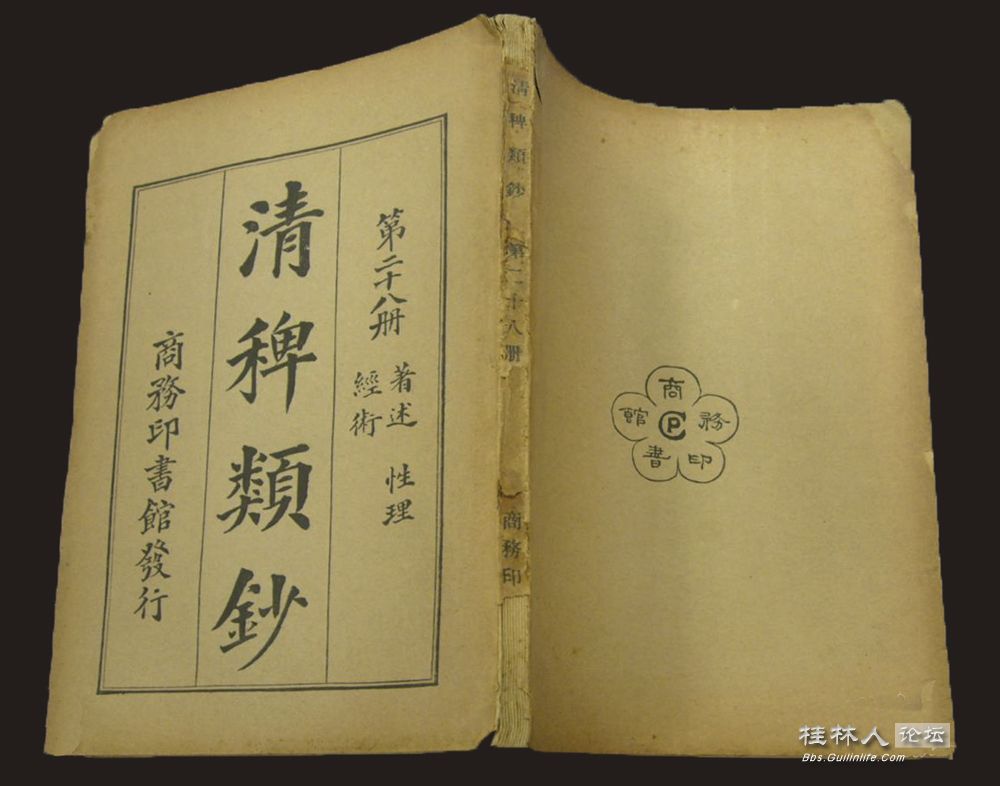 第二十八册
著述 性理
經術
清稗類鈔
商務印書館發行
清稗類鈔
第二十八册
商務印
商務印書館
CP
桂林人论坛
Bbs.Guilinlife.Com